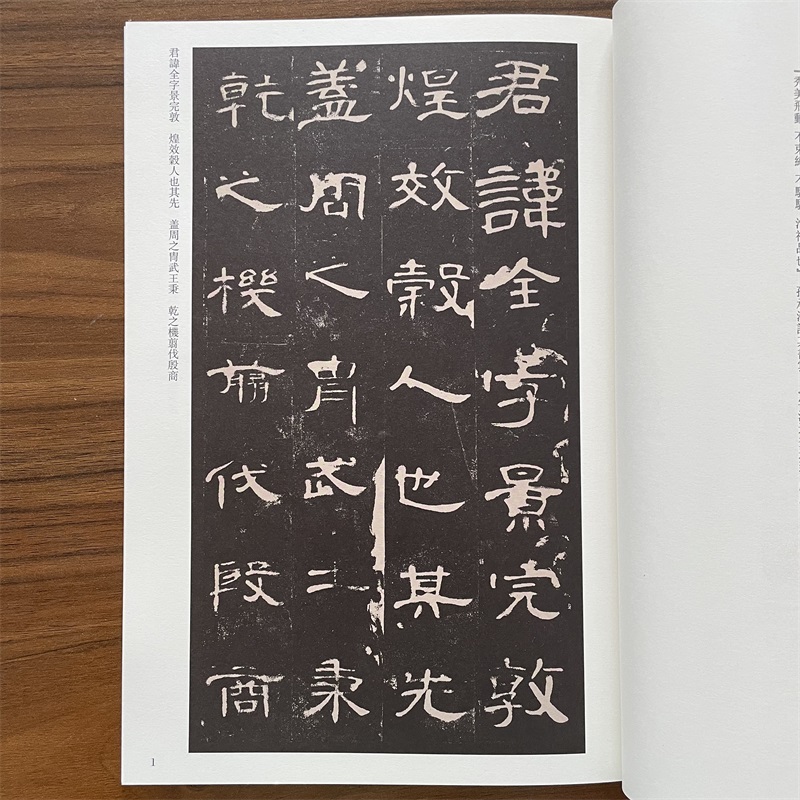 君諱全字景完敦
煌效穀人也其先
蓋周之胄武王秉
乾之機翦伐殷商
君諱全字景完敦　煌效穀人也其先　盖周之胄武王秉　乾之機翦伐殷商
1